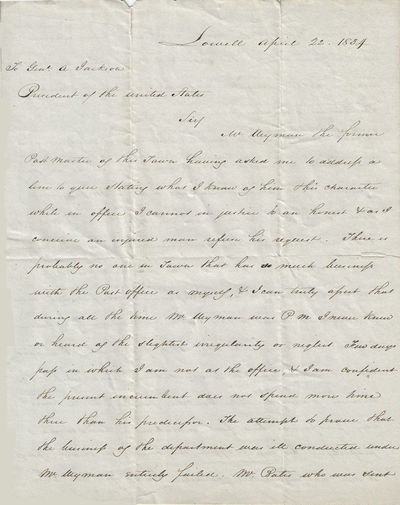 Lowell April 22. 1834
To Genl. A Jackson
President of the United States
Sir
Mr Wyman the former
Post Master of this Town having asked me to address a
line to you stating what I know of him & his character
while in office I cannot in justice to an honest & as I
conceive an injured man refuse his request. There is
probably no one in Town that has so much business
with the Post office as myself, & I can truly assert that
during all the time Mr Wyman was P M I never knew
or heard of the slightest irregularity or neglect Few days
pass in which I am not at the office, & I am confident
the present incumbent does not spend more time
there than his predecessor. The attempt to prove that
the business of the department was ill conducted under
Mr Wyman entirely failed. Mr Bates who was sent